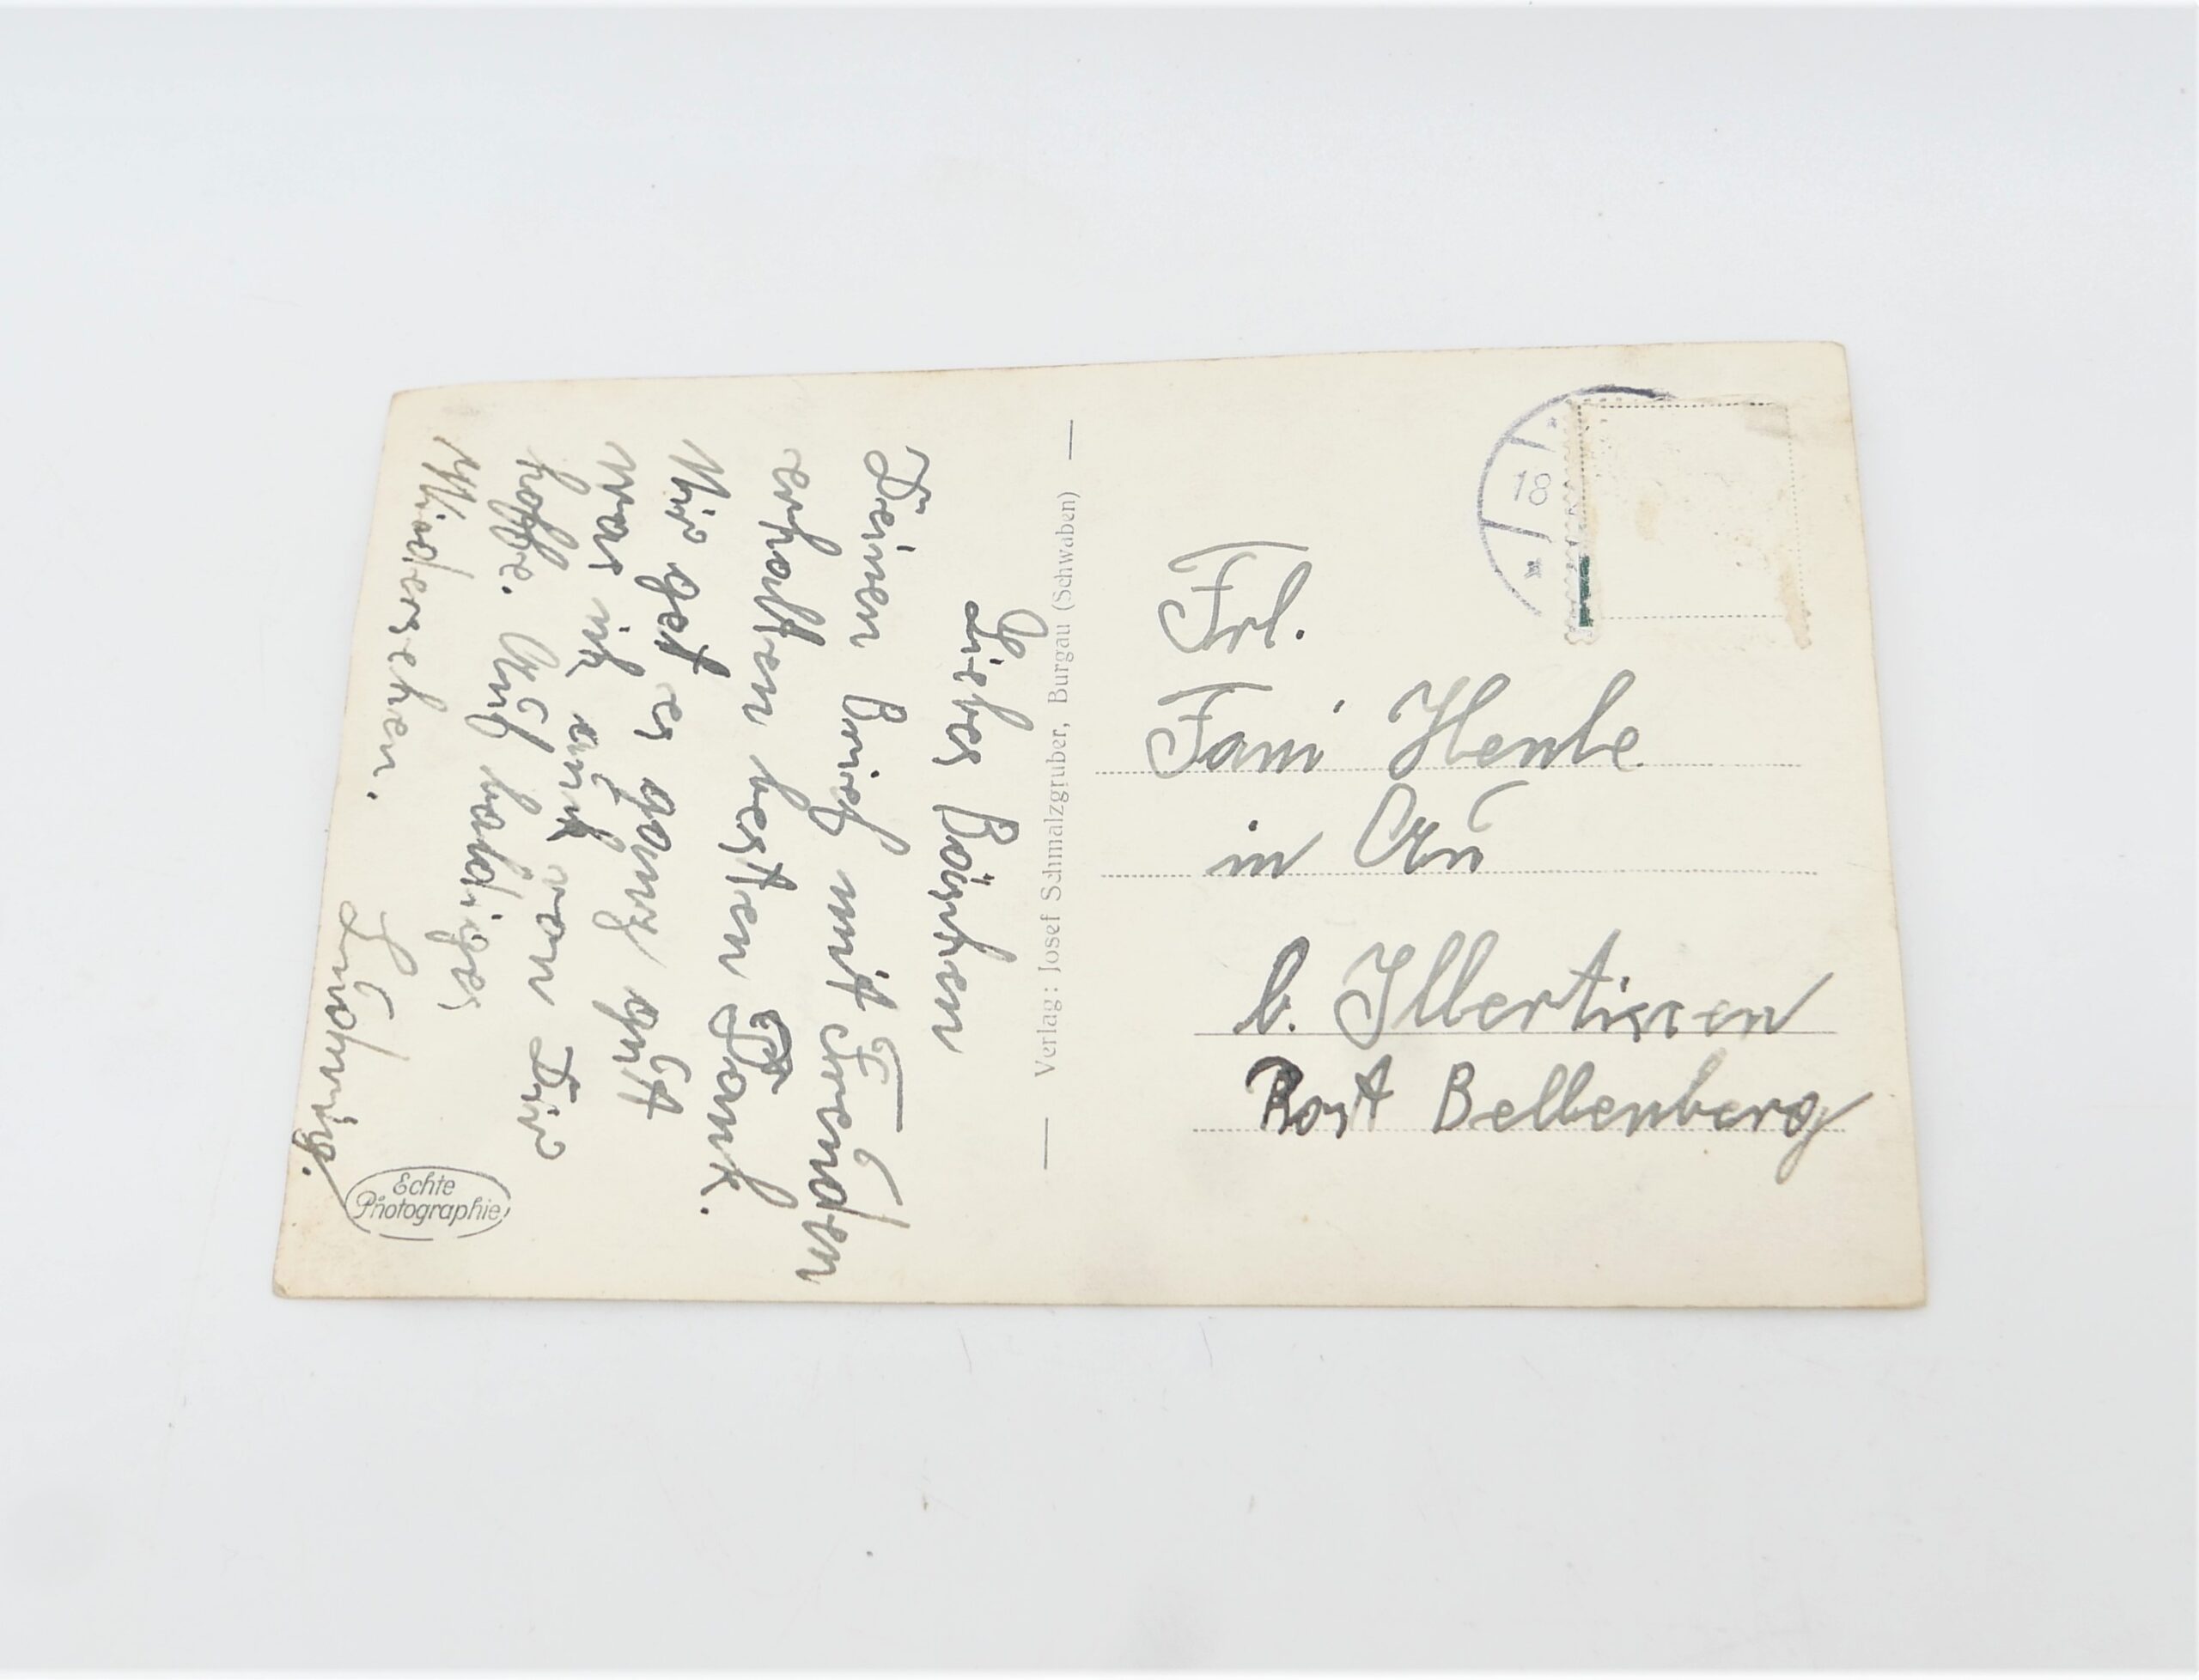 Liebes Bäschen
Deinen Brief mit Freuden
erhalten besten Dank.
Mir get es ganz gut
was ich auch von Dir
hoffe. Auf baldiges
Wiedersehen.
Ludwig.
Echte
Photographie
Verlag: Josef Schmalzgruber, Burgau (Schwaben)
18
Frl.
Fani Henle
in Au
b. Illertissen
Post Bellenberg